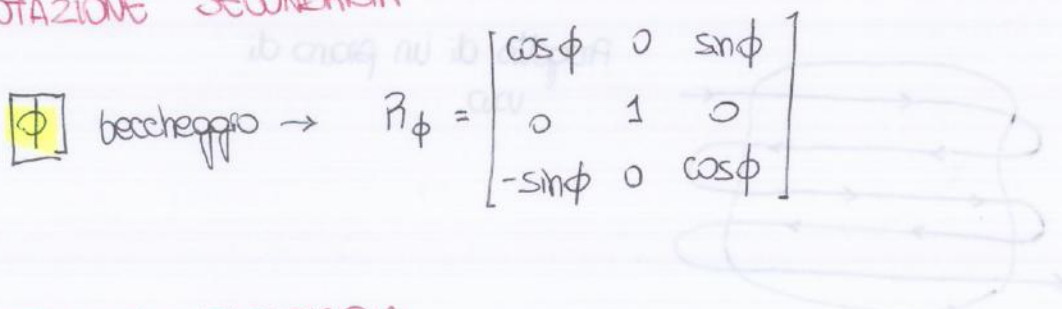 OTAZIONE SECONDARIA
ϕ beccheggio → Rϕ = [cosϕ 0 sinϕ
0 1 0
-sinϕ 0 cosϕ]